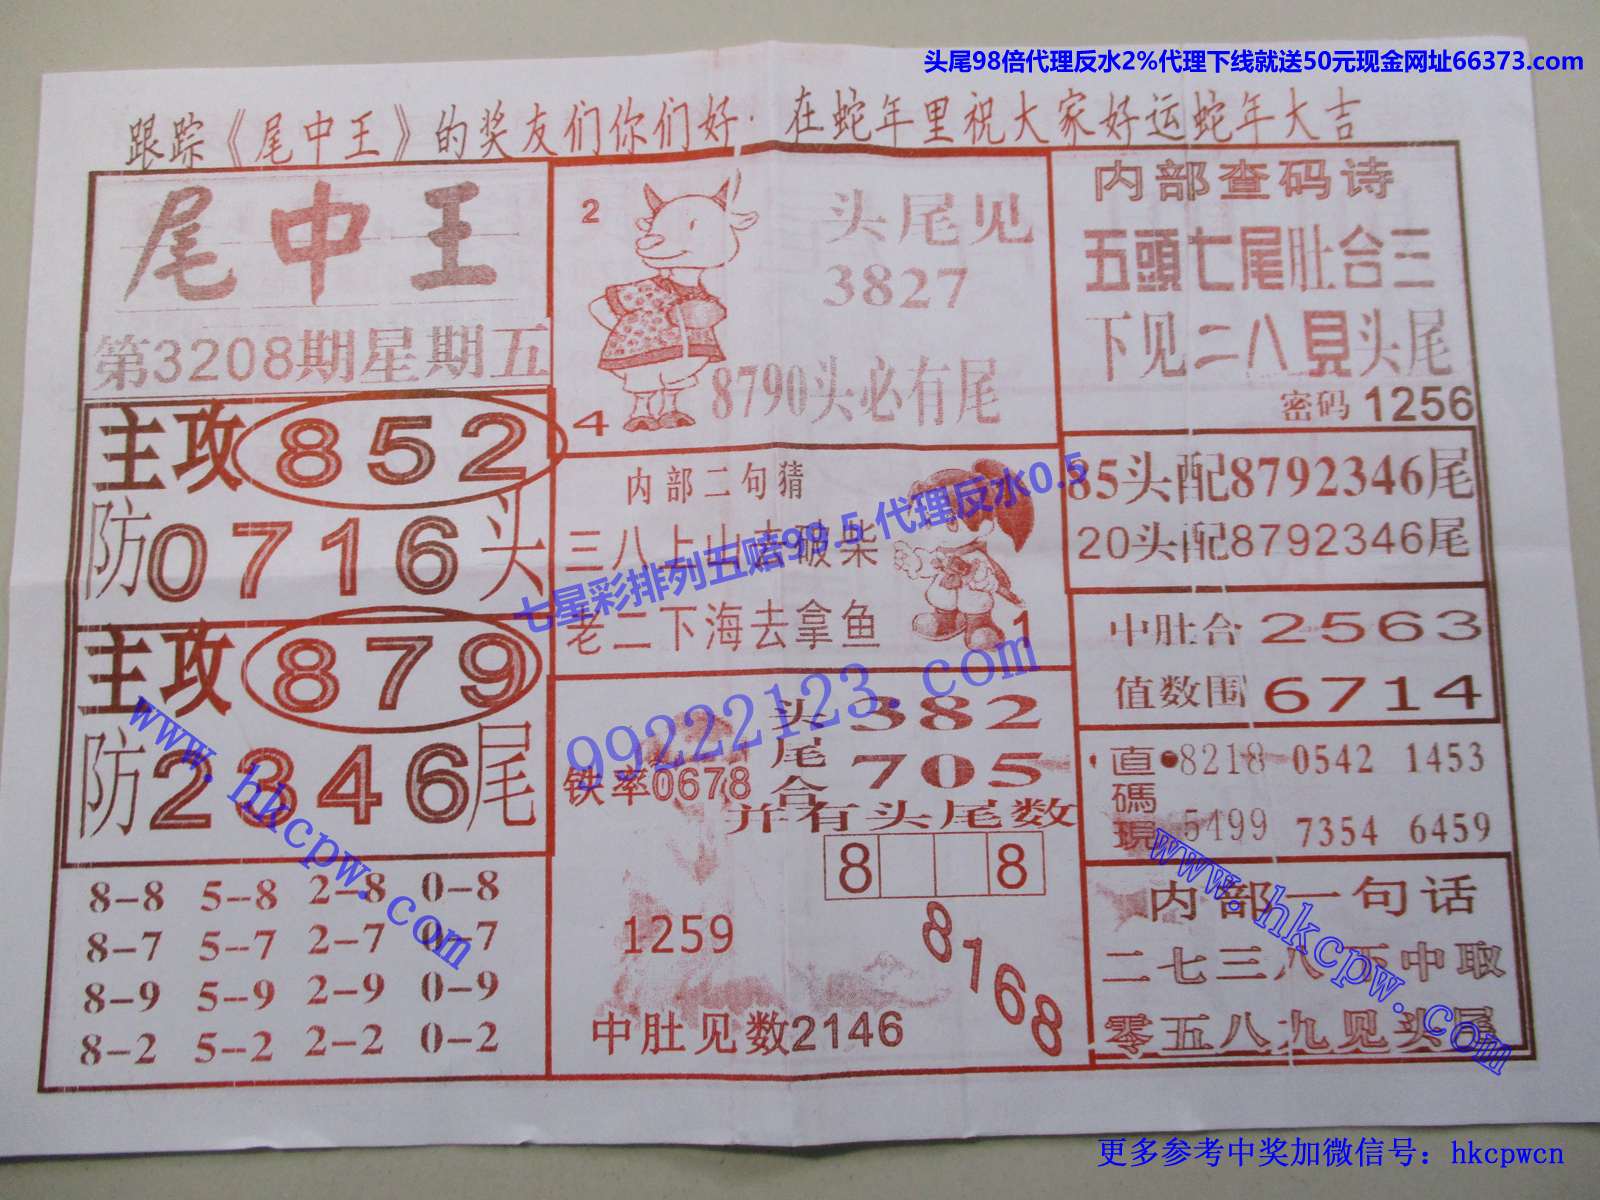 头尾98倍代理反水2%代理下线就送50元现金网址66373.com
跟踪《尾中王》的奖友们你们好·在蛇年里祝大家好运蛇年大吉
尾中王
第3208期星期五
主攻852
防0716头
主攻879
防2346尾
8-8 5-8 2-8 0-8
8-7 5-7 2-7 0-7
8-9 5-9 2-9 0-9
8-2 5-2 2-2 0-2
2
头尾见
3827
8790头必有尾
4
内部二句猜
三八上山去破柴
老二下海去拿鱼
1
七星彩排列五赔99.5 代理反水0.5
99222123.com
头尾合
382
705
铁率0678
并有头尾数
8 8
1259
8168
中肚见数2146
内部查码诗
五頭七尾肚合三
下见二八見头尾
密码 1256
85头配8792346尾
20头配8792346尾
中肚合 2563
值数围 6714
直碼現
8218 0542 1453
5499 7354 6459
内部一句话
二七三八 中取
零五八九见头尾
www.hkcpw.com
www.hkcpw.com
更多参考中奖加微信号：hkcpwcn